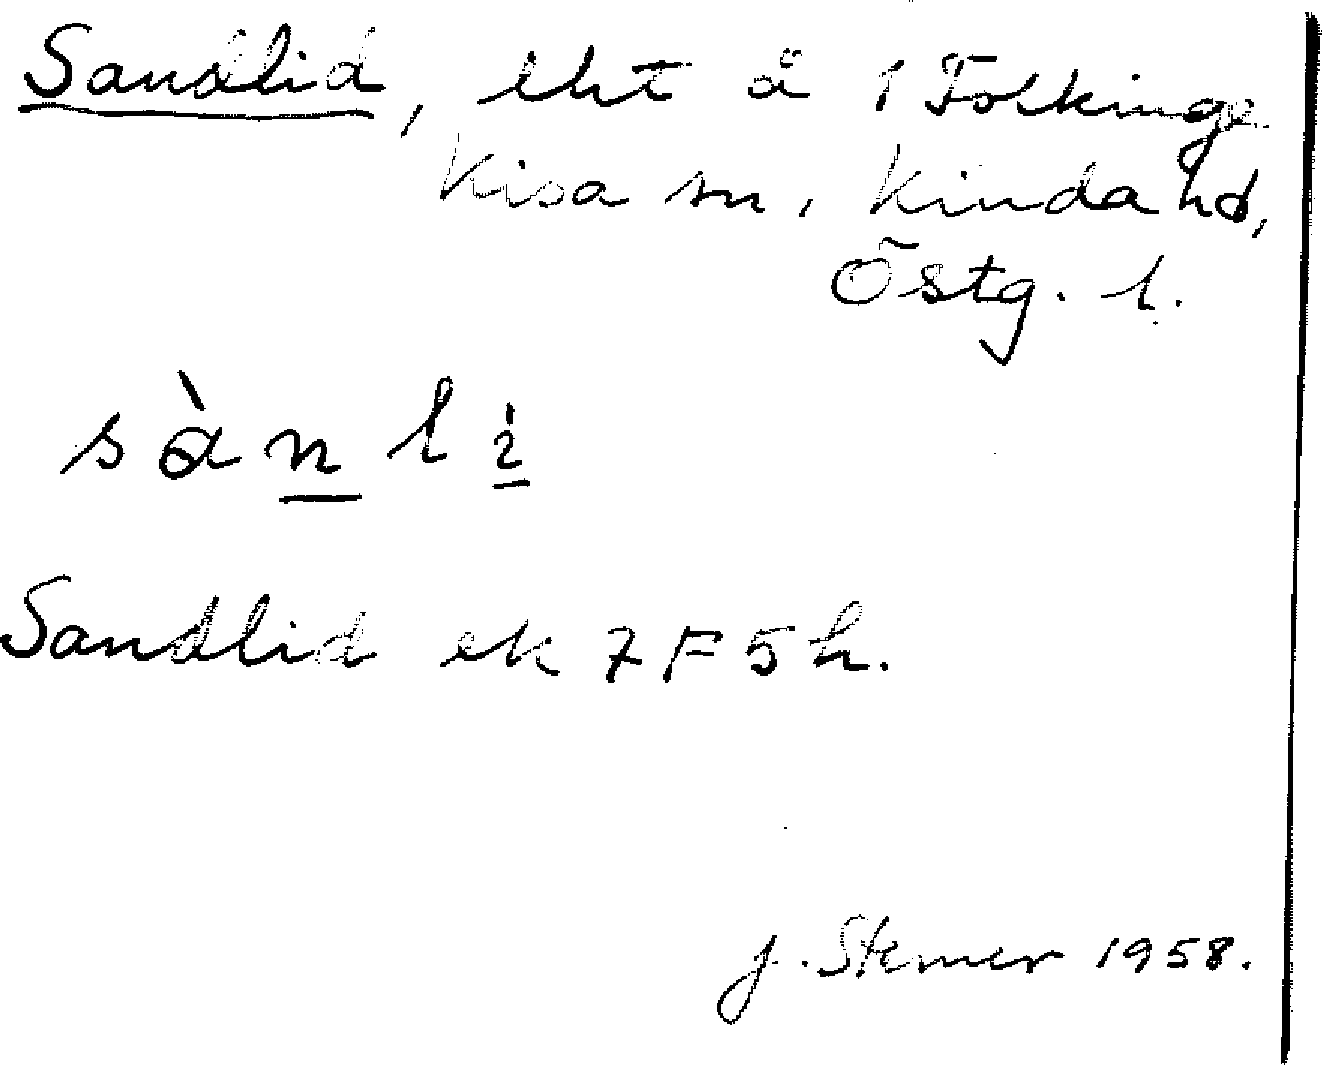 Sandlid, lht å 1 Folkinge
Kisa sn, Kinda hd,
Östg. l.
sàn lì
Sandlid ek 7F5h.
J. Stemer 1958.